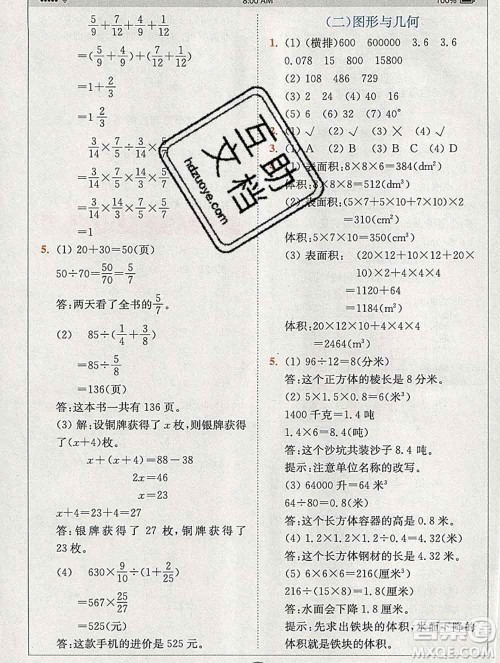 8:00 AM
100%
5/7+5/12+2/7+7/12
=(5/7+2/7)+(5/12+7/12)
=1+2/3
3/14×7/5÷3/14×5/7
=3/14×7/5×14/3×5/7
=1
5. (1) 20+30=50(页)
50÷70=50/70=5/7
答:两天看了全书的5/7。
(2) 85÷(1/4+3/8)
=85÷5/8
=136(页)
答:这本书一共有 136 页。
(3) 解:设铜牌获得了 x 枚,则银牌获得了(x+4)枚。
x+(x+4)=88-38
2x=46
x=23
x+4=23+4=27
答:银牌获得了 27 枚,铜牌获得了 23 枚。
(4) 630×9/10÷(1+2/25)
=567×25/27
=525(元)
答:这款手机的进价是 525 元。
(二)图形与几何
1. (1) (横排)600 600000 3.6 3.6
0.078 15 800 15800
(2) 108 486 729
(3) 2 24 32 16 40
(4) 6 32 40°
(1) A B C D
(1) 表面积:8×8×6=384(dm²)
体积:8×8×8=512(dm³)
(2) 表面积:(5×7+5×10+7×10)×2
=310(cm²)
体积:5×7×10=350(cm³)
(3) 表面积:(20×12+20×10+12×10)×2+4×4×4
=1120+64
=1184(m²)
体积:20×12×10+4×4×4
=2464(m³)
5. (1) 96÷12=8(分米)
答:这个正方体的棱长是 8 分米。
1400 千克=1.4 吨
1.4×6=8.4(吨)
答:这个沙坑共装沙子 8.4 吨。
提示:注意单位名称的改写。
(3) 64000 升=64 米³
64÷80=0.8(米)
答:这个长方体容器的高是 0.8 米。
答:这个长方体钢材的长是 4.32 米。
(5) 6×6×6=216(厘米³)
答:水面会下降 1.8 厘米。
提示:先求出铁块的体积,水面下降的体积就是铁块的体积。
互助文档
hdzuoye.com
作业答案
MXQE.COM